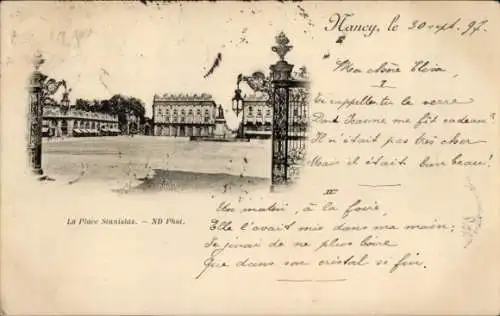 Nancy, le 30 sept. 97.
Ma chère
I
Te rappelles-tu le verre
Dont Jeanne me fit cadeau?
Il n'était pas très cher
Mais il était bien beau!
II
Un matin, à la foire,
Elle l'avait mis dans ma main;
Je jurai de ne plus boire
Que dans son cristal si fin.
La Place Stanislas. — ND Phot.